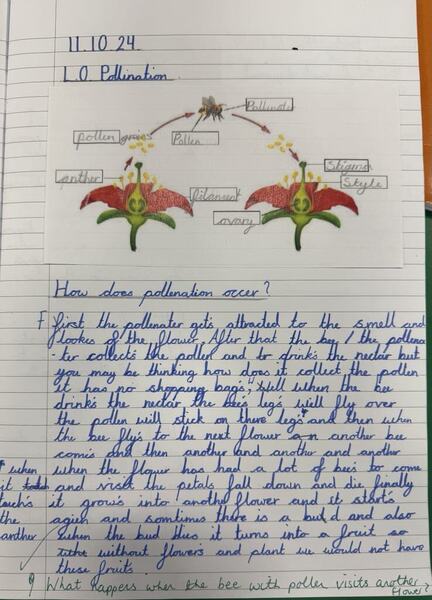 11.10.24
L.O. Pollination
Pollinater
pollen grains
Pollen
anther
Stigma
Style
filament
ovary
How does pollenation occer?
First the pollenater gets attracted to the smell and
lookes of the flower. After that the bee / the pollena
-ter collects the pollen and to drinks the nectar but
you may be thinking how does it collect the pollen
it has no shopping bags", Well when the bee
drinks the nectar the bee's legs will fly over
the pollen will stick on there legs and then when
the bee fly's to the next flower an another bee
comes and then another and another and another
when the flower has had a lot of bee's to come
and visit the petals fall down and die finally
it grow's into another flower and it start's
agien and somtimes there is a bud and also
when the bud dies it turns into a fruit so
without flowers and plant we would not have
these fruits.
when
it
touch's
the
anther
What happens when the bee with pollen visits another
flower?